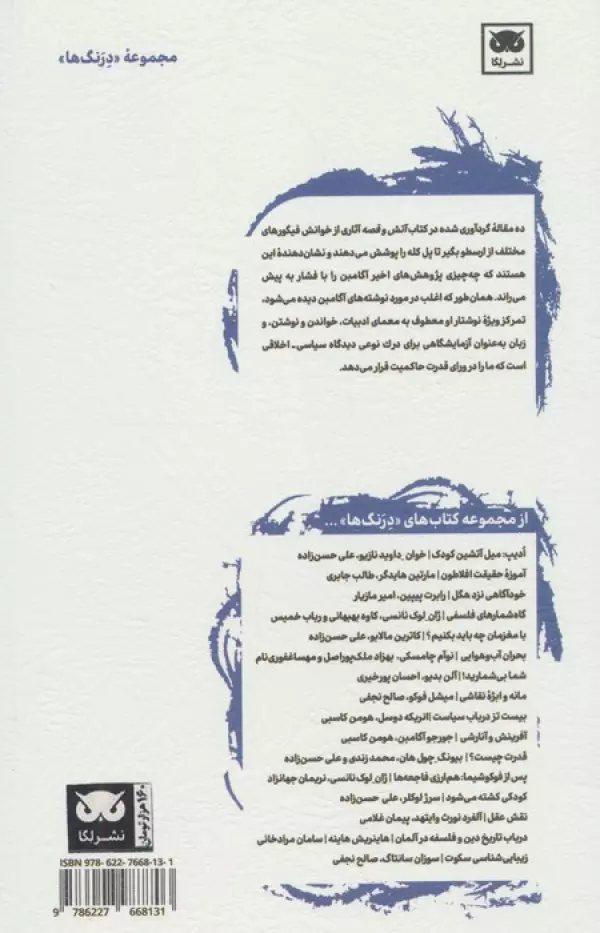 نشر لگا
مجموعهٔ «دِرَنگ‌ها»
ده مقالهٔ گردآوری شده در کتاب آتش و قصه آثاری از خوانش فیگورهای
مختلف از ارسطو بگیر تا پل کله را پوشش می‌دهند و نشان‌دهندهٔ این
هستند که چه‌چیزی پژوهش‌های اخیر آگامبن را با فشار به پیش
می‌راند. همان‌طور که اغلب در مورد نوشته‌های آگامبن دیده می‌شود،
تمرکز ویژهٔ نوشتار او معطوف به معمای ادبیات، خواندن و نوشتن، و
زبان به‌عنوان آزمایشگاهی برای درك نوعی دیدگاه سیاسی-اخلاقی
است که ما را در ورای قدرت حاکمیت قرار می‌دهد.
از مجموعه کتاب‌های «دِرَنگ‌ها» ...
اُدیپ: میل آتشین کودک | خوان ـداوید نازیو، علی حسن‌زاده
آموزهٔ حقیقت افلاطون | مارتین هایدگر، طالب جابری
خودآگاهی نزد هگل | رابرت پیپین، امیر مازیار
گاه‌شمارهای فلسفی | ژان لوک نانسی، کاوه بهبهانی و رباب خمیس
با مغزمان چه باید بکنیم؟ | کاترین مالابو، علی حسن‌زاده
بحران آب‌وهوایی | نوآم چامسکی، بهزاد ملک‌پوراصل و مهساغفوری‌نام
شما بی‌شمارید! | آلن بدیو، احسان پورخیری
مانه و ابژهٔ نقاشی | میشل فوکو، صالح نجفی
بیست تز درباب سیاست | انریکه دوسل، هومن کاسبی
آفرینش و آنارشی | جورجو آگامبن، هومن کاسبی
قدرت چیست؟ | بیونگ‌ چول هان، محمد زندی و علی حسن‌زاده
پس از فوکوشیما: هم‌ارزی فاجعه‌ها | ژان لوک نانسی، نریمان جهانزاد
کودکی کشته می‌شود | سرژ لوکلر، علی حسن‌زاده
نقش عقل | آلفرد نورث وایتهد، پیمان غلامی
درباب تاریخ دین و فلسفه در آلمان | هاینریش هاینه | سامان مرادخانی
زیبایی‌شناسی سکوت | سوزان سانتاگ، صالح نجفی
نشر لگا
۱۶۰ هزار تومان
ISBN 978- 622- 7668-13- 1
9 786227 668131